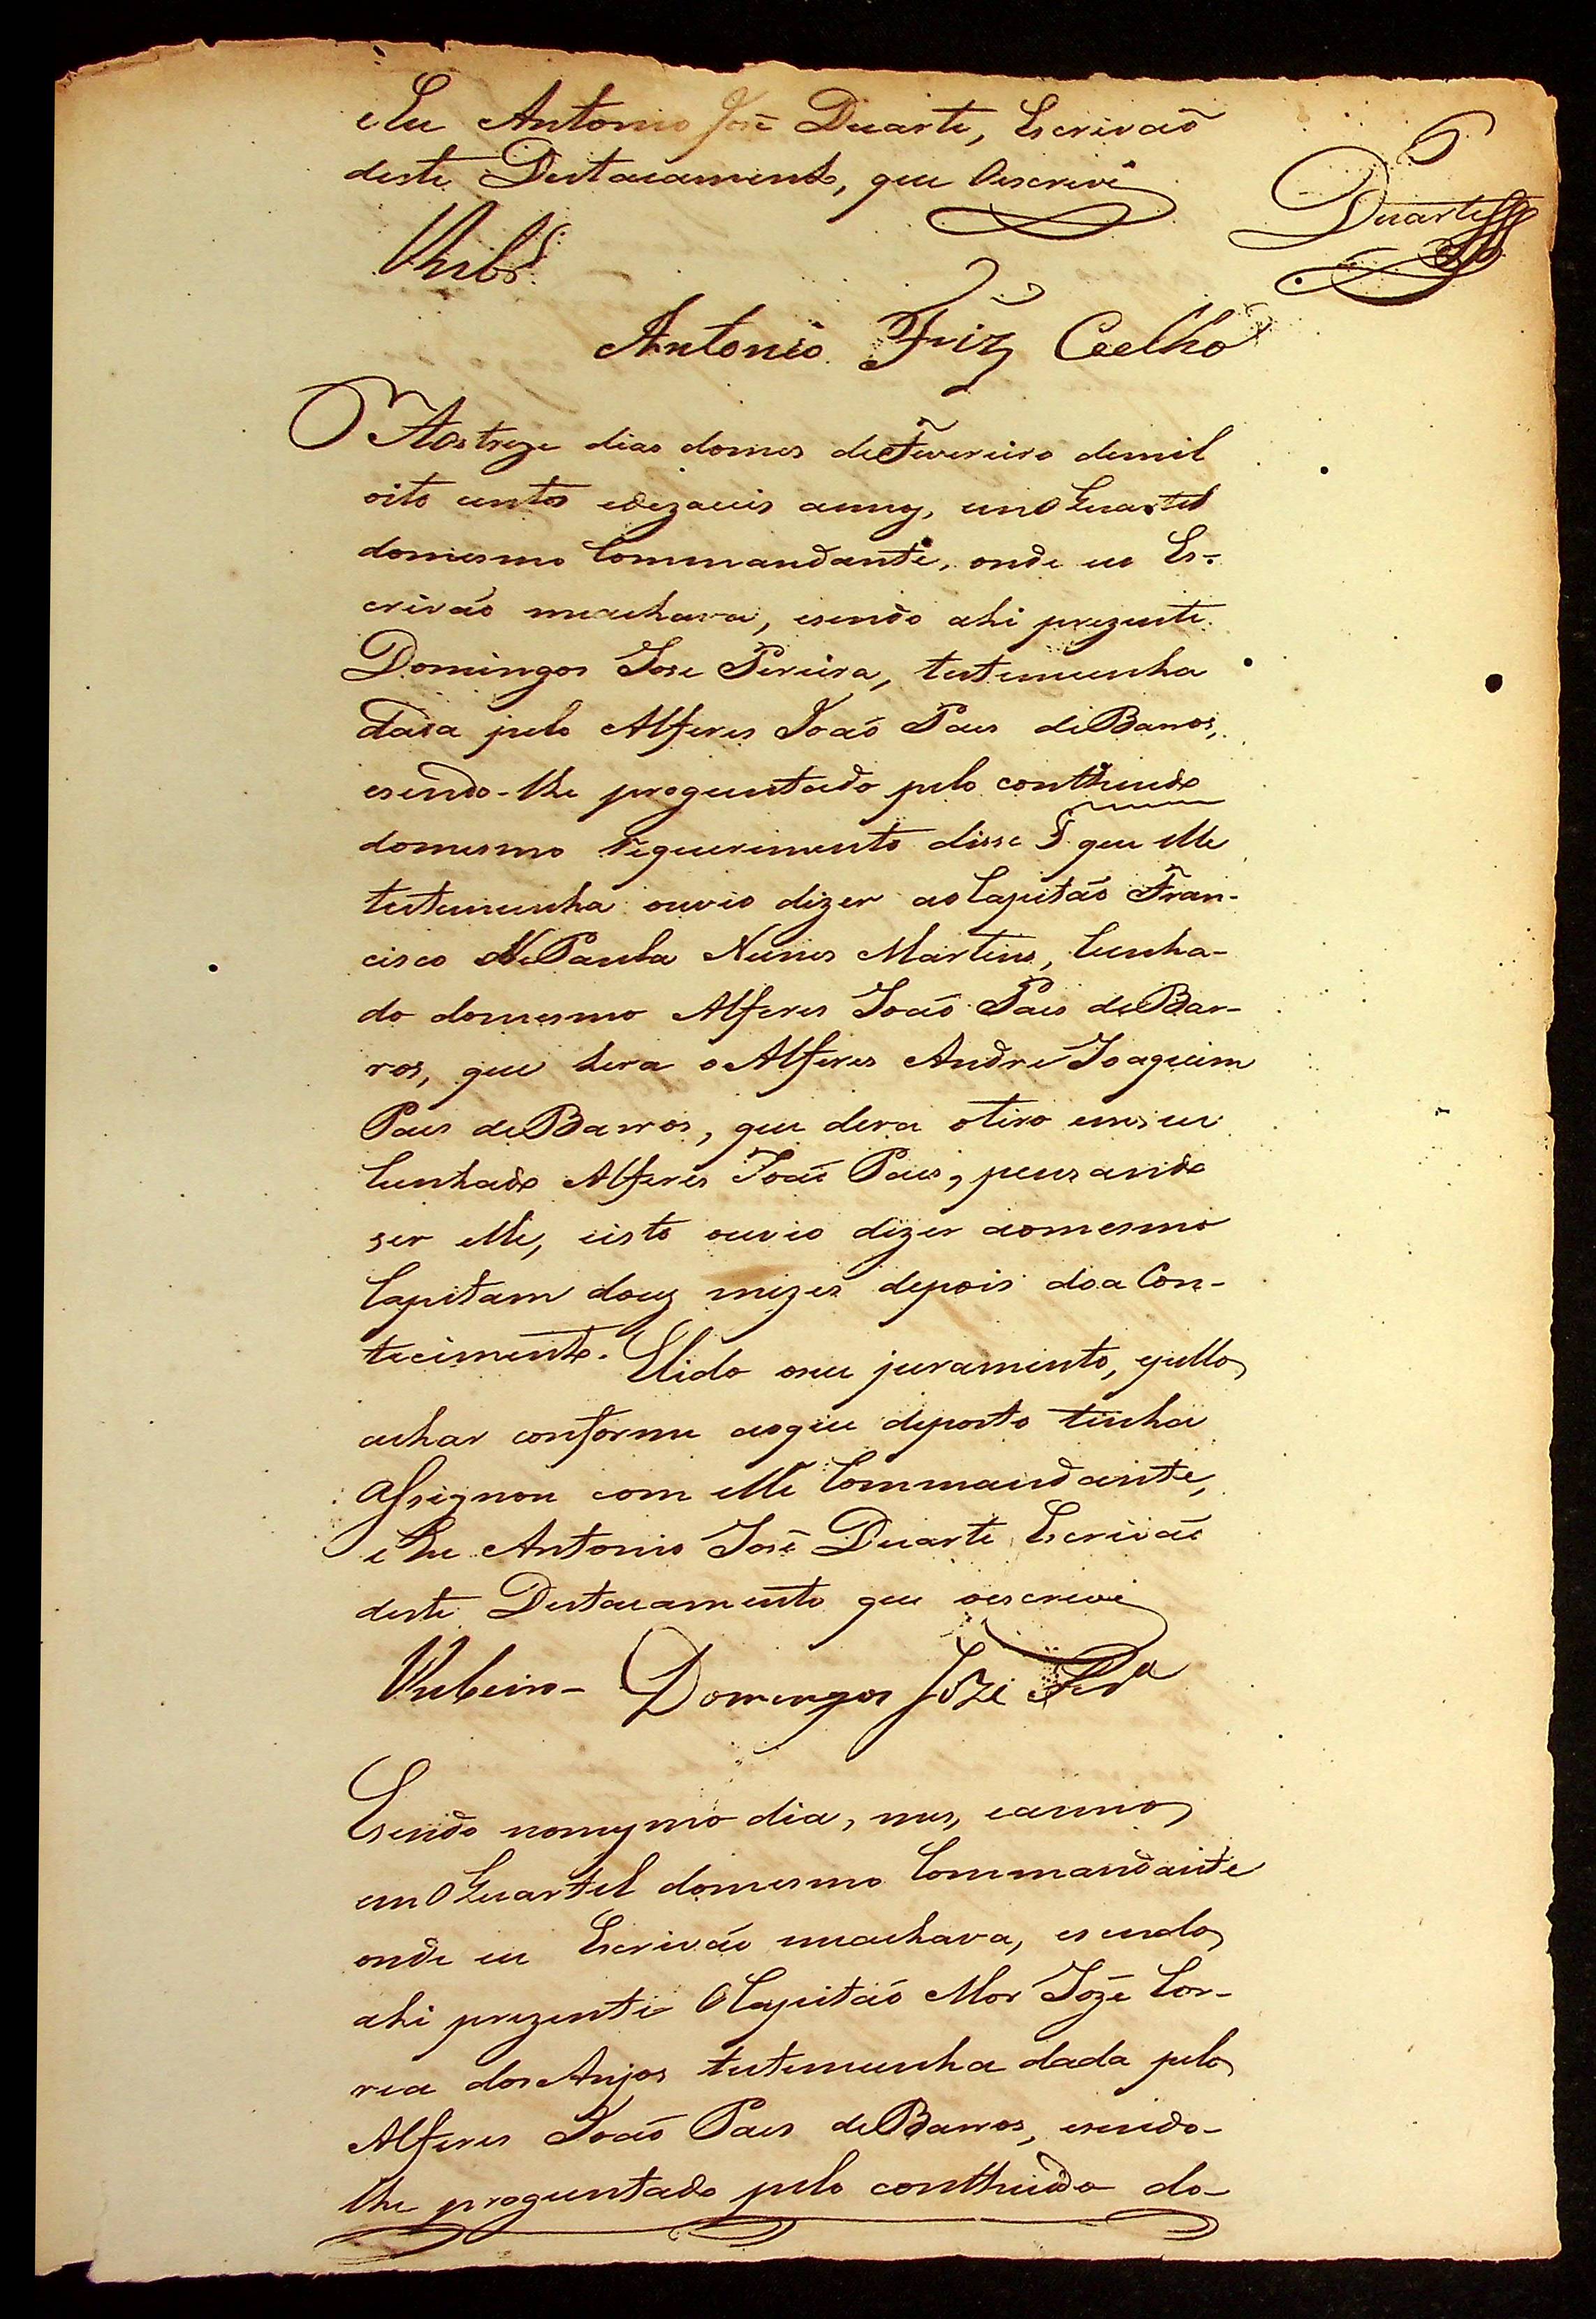 eEu Antonio José Duarte, Escrivaõ
deste Destacamento, que Oescrevi
5
Duarte
Antonio Friz Coelho
Aos treze dias domes deFevereiro demil
oito centos edezaceis annos, emOQuartel
domesmo Commandante, onde eu Es-
crivaõ meachava, esendo ahi prezente
Domingos Jose Pereira, testemunha
dada pelo Alferes Joaõ Paes deBarros,
esendo-lhe proguntado pelo contheudo
domesmo requerimento disse que elle
testemunha ouvio dizer aoCapitaõ Fran-
cisco dePaula Nunes Martins, Cunha-
do domesmo Alferes Joaõ Paes deBar-
ros, que hera oAlferes Andre Joaquim
Paes deBarros, que dera otiro emseu
Cunhado Alferes Joaõ Paes, pensando
ser elle, eisto ouvio dizer aomesmo
Capitam douz mezes depois doaCon-
tecimento. Elido oseu juramento, epello
achar conforme aoque deposto tinha
assignou com elle Commandante,
eEu Antonio José Duarte Escrivaõ
deste Destacamento que oescrevi
Vribeiro- Domingos Joze Pra
Esendo nomesmo dia, mes, eanno
emOQuartel domesmo Commandante
onde eu Escrivaõ meachava, esendo
ahi prezente OCapitaõ Mor Jozé Cor-
rea dosAnjos testemunha dada pelo
Alferes Joaõ Paes deBarros, esendo-
lhe proguntado pelo contheudo do-